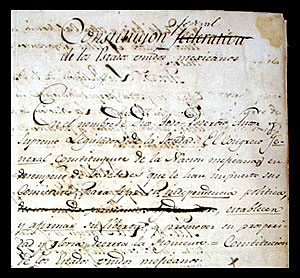 Constitucion federativa
de los Estados unidos mexicanos
En el nombre de Dios
Supremo Legislador de la Sociedad. El Congreso ge-
neral Constituyente de la Nacion mexicana, en
desempeño de los deberes que le han impuesto sus
Comitentes, para fijar su Independencia politica,
establecer
y afirmar su libertad, y promover su prosperi-
dad y gloria, decreta la siguiente Constitucion
de los Estados unidos mexicanos.